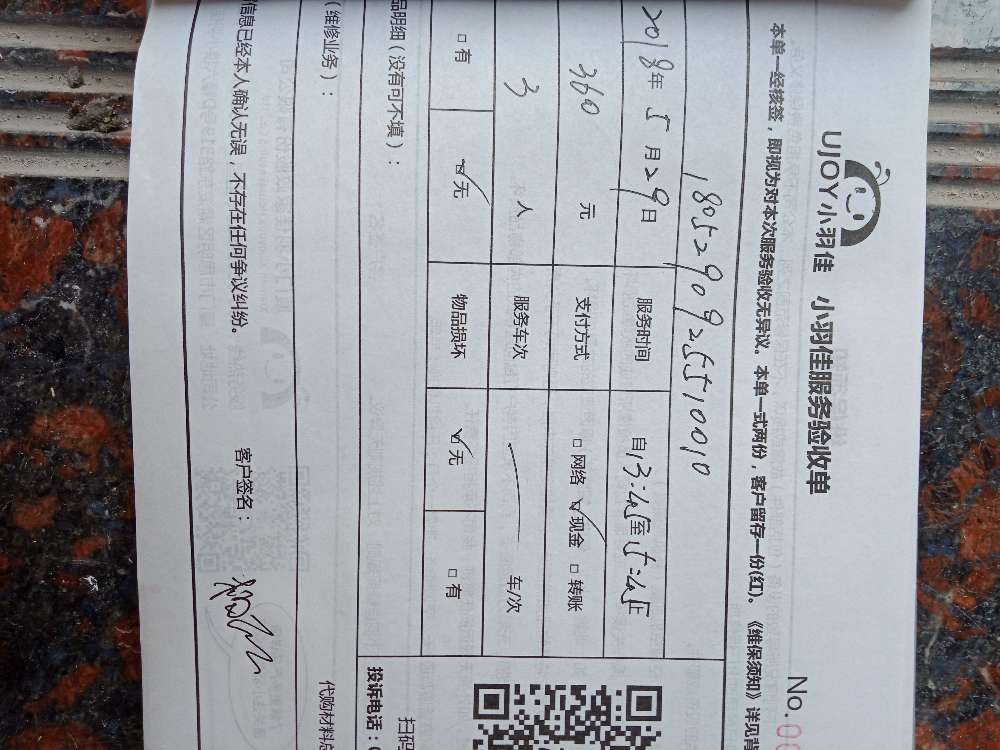 UJOY小羽佳 小羽佳服务验收单
No.00
本单一经核签，即视为对本次服务验收无异议。本单一式两份，客户留存一份(红)。《维保须知》详见背
1805290925510010
2018年5月29日 服务时间 自13:45至15:45
360元 支付方式 □网络 ☑现金 □转账
3人 服务车次 车/次
□有 ☑无 物品损坏 ☑无 □有
品明细(没有可不填)：
投诉电话：
扫码
(维修业务)：
代购材料总
信息已经本人确认无误，不存在任何争议纠纷。 客户签名：